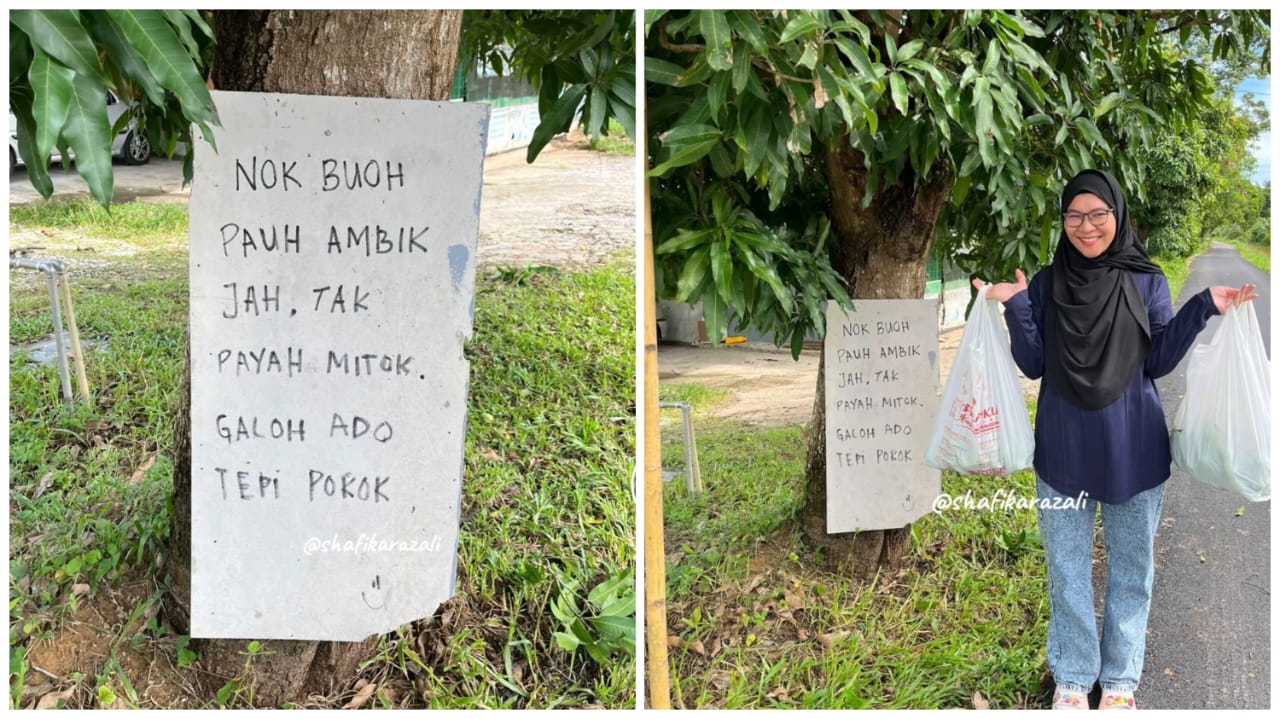 NOK BUOH
PAUH AMBIK
JAH. TAK
PAYAH MITOK.
GALOH ADO
TEPI POKOK
@shafikarazali
NOK BUOH
PAUH AMBIK
JAH. TAK
PAYAH MITOK.
GALOH ADO
TEPI POKOK
@shafikarazali